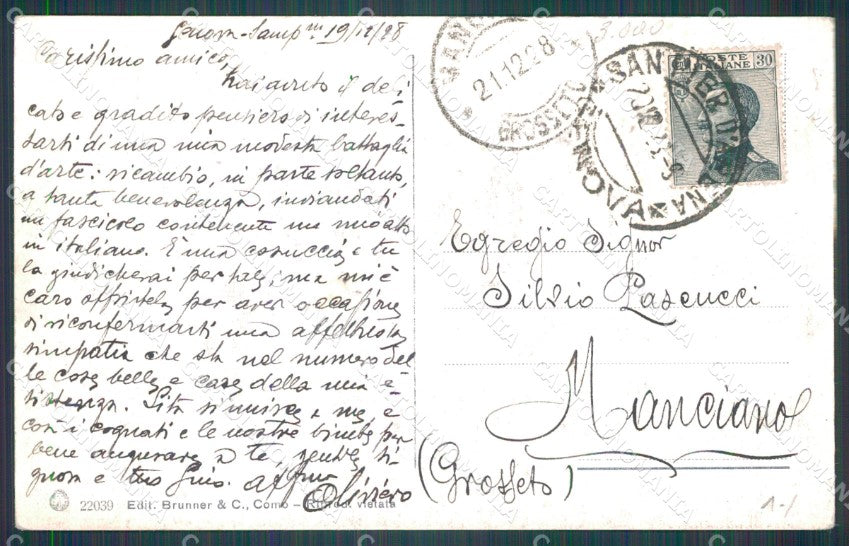 Genova-Samp. 19/12/28
Carissimo amico,
hai avuto il deli
cato e gradito pensiero di interes-
sarti di una mia modesta battaglia
d'arte: ricambio, in parte soltanto,
a tanta benevolenza, inviandoti
un fascicolo contenente un mio atto
in italiano. È una cosuccia e tu
la giudicherai per tale, ma mi è
caro offrirtela per aver occasione
di riconfermarti una affettuosa
simpatia che sta nel numero del
le cose belle e care della mia e-
sistenza. Sita si unisce a me, e
così i cognati e le nostre bimbe per
bene augurare a te, sentite, si-
gnora e tuo Gino. aff.mo
Oliviero
22039 Edit. Brunner & C., Como - Riprod. vietata
21.12.28
GROSSETO
3.000
POSTE ITALIANE 30
SAN PIER D'ARENA
Egregio Signor
Silvio Pascucci
Manciano
(Grosseto)
1-1
CARTOLINOMANIA